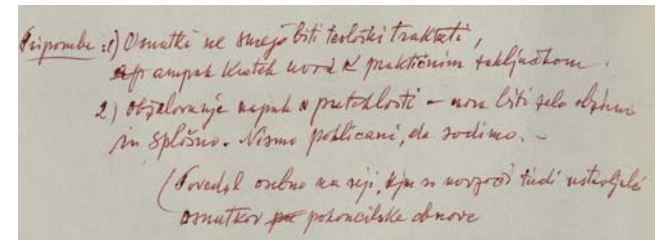 Pripombe: 1) Osnutki ne smejo biti teološki traktati,
ampak kratek uvod k praktičnim zaključkom.
2) Obžalovanje napak v preteklosti – mora biti zelo obzirno
in splošno. Nismo poklicani, da sodimo. –
(Povedal osebno na seji, kjer so navzoči tudi
osnutkov pokoncilske obnove